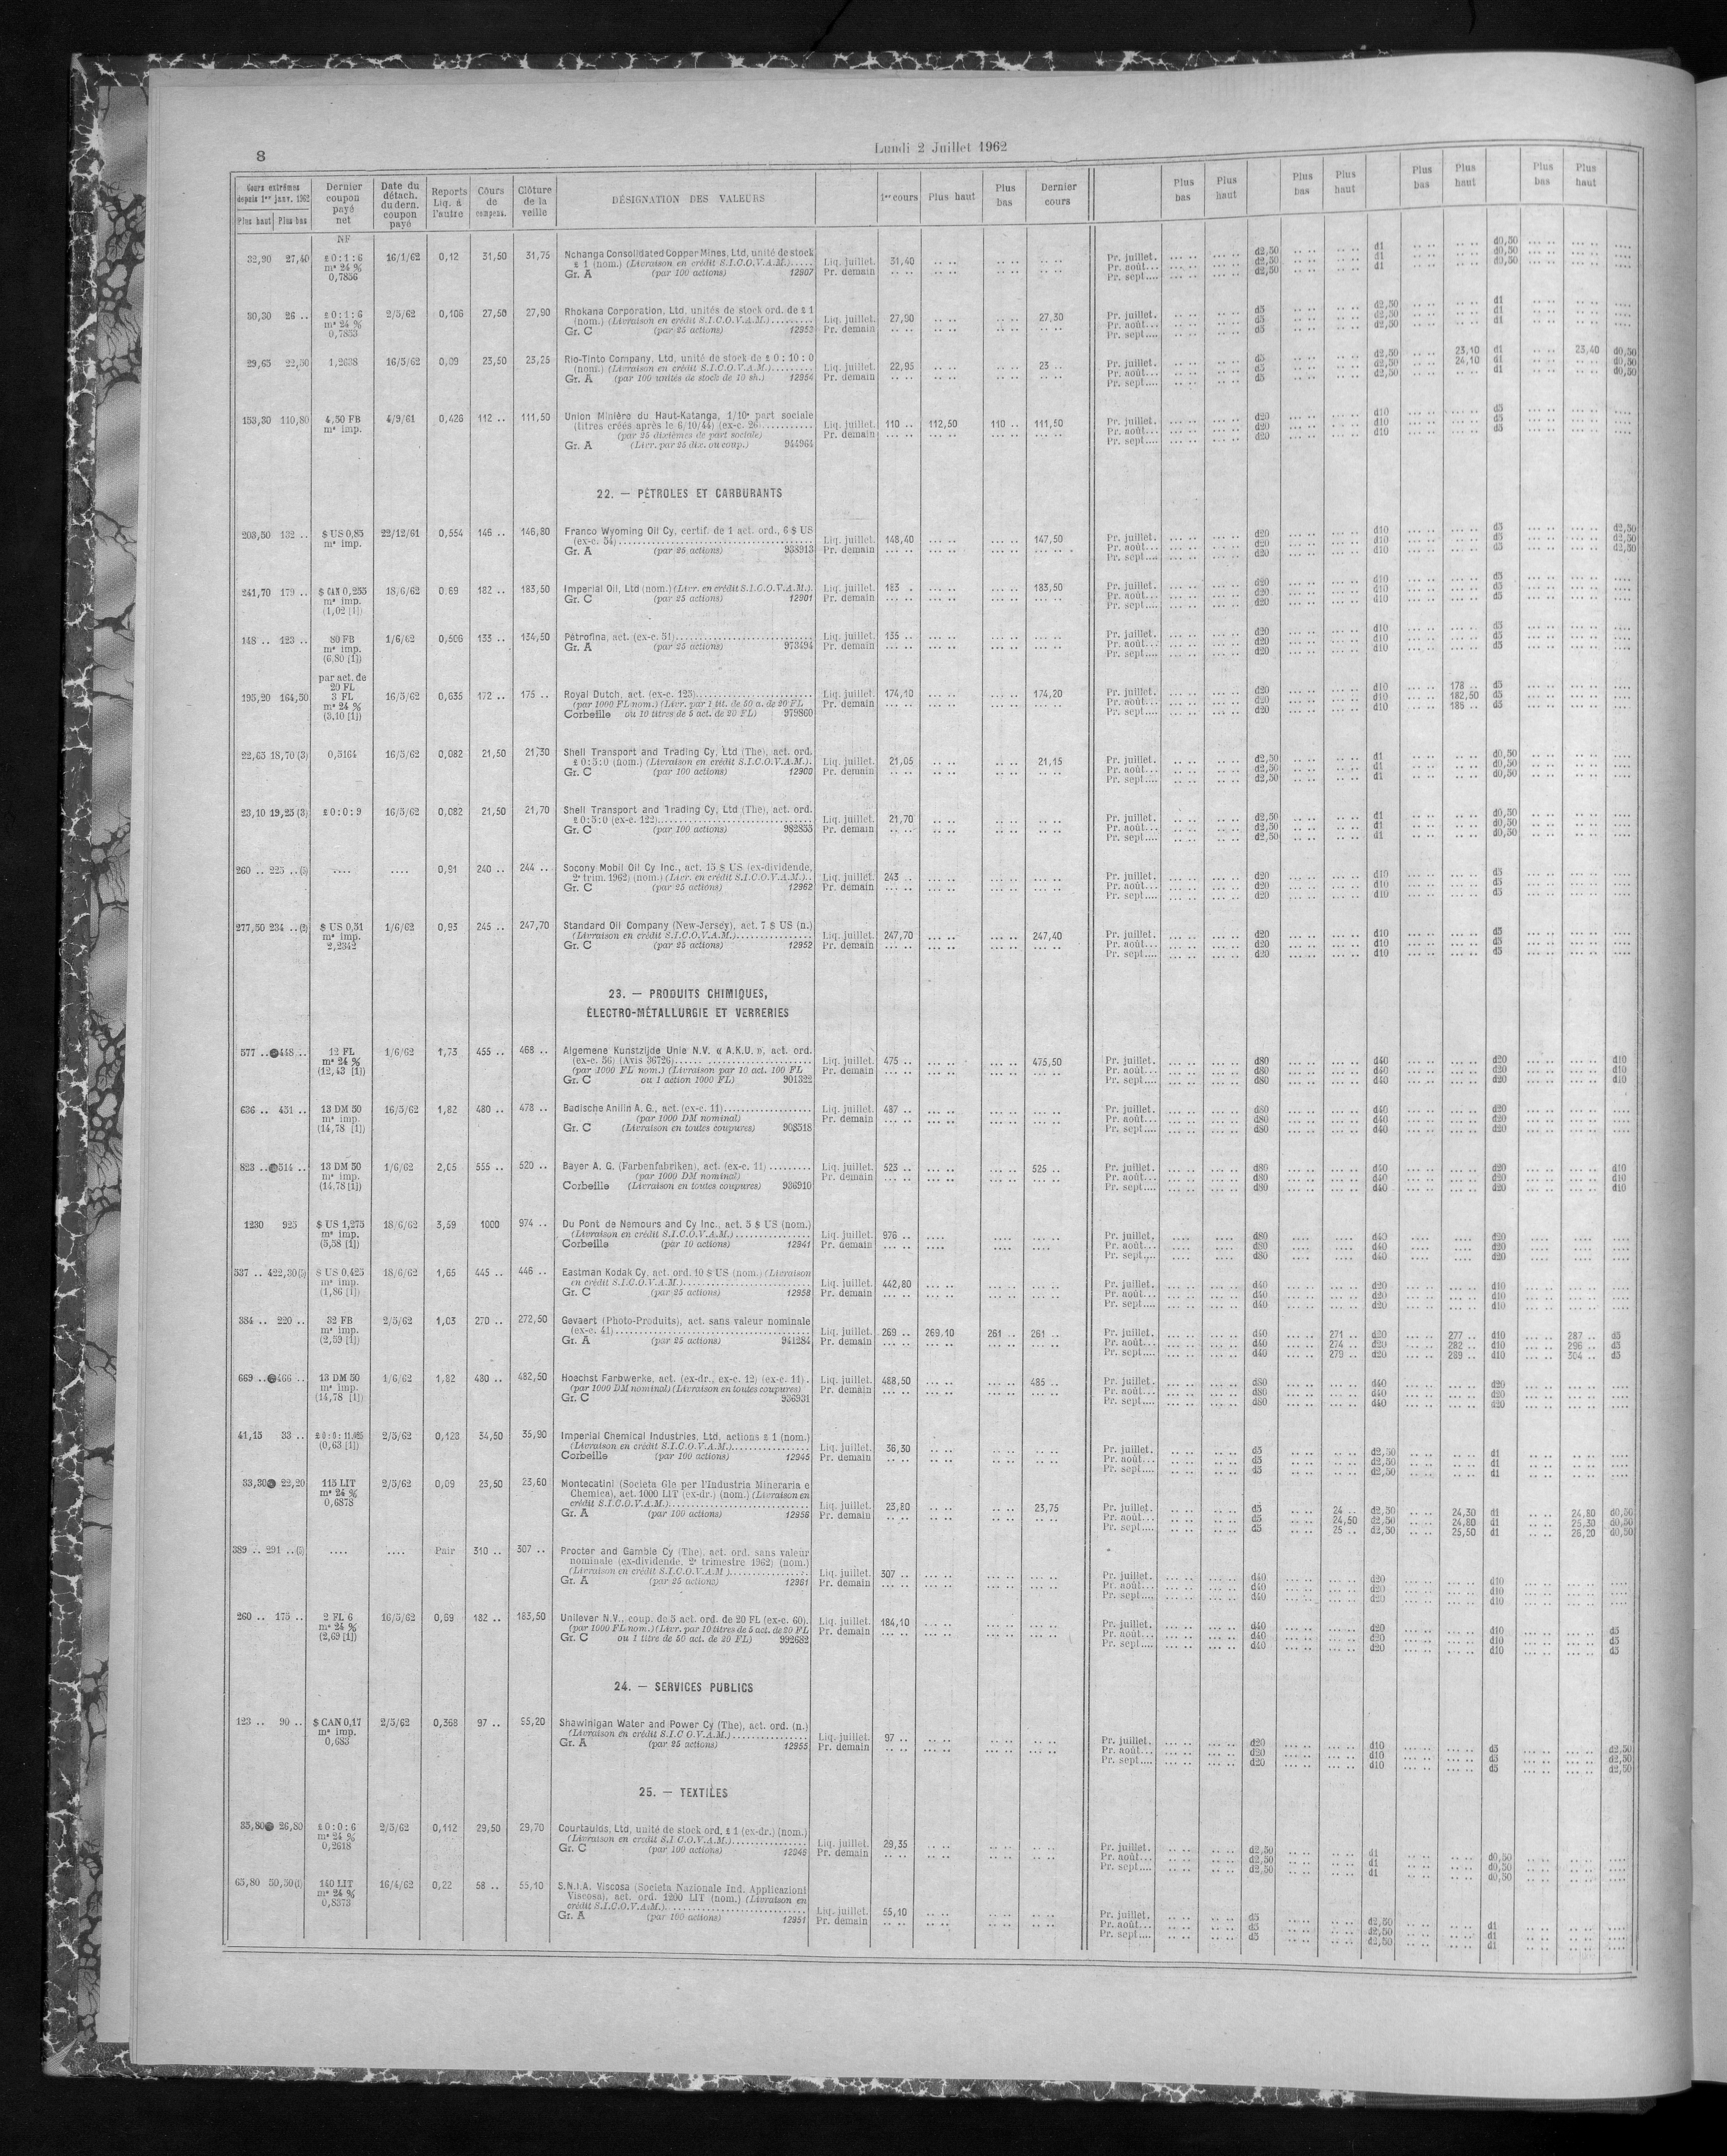 8
Lundi 2 Juillet 1962
Cours extrêmes depuis 1er janv. 1962 Dernier coupon payé net Date du détach. du dern. coupon payé Reports Liq. à l'autre Cours de compens. Clôture de la veille DÉSIGNATION DES VALEURS 1er cours Plus haut Plus bas Dernier cours Plus bas Plus haut Plus bas Plus haut Plus bas Plus haut Plus bas Plus haut
Plus haut Plus bas
NF
32,90 27,40 £ 0:1:6 16/1/62 0,12 31,50 31,75 Nchanga Consolidated Copper Mines, Ltd, unité de stock
m* 24 % £ 1 (nom.) (Livraison en crédit S.I.C.O.V.A.M.)..... Liq. juillet. 31,40 Pr. juillet. d2,50 d1 d0,50
0,7836 Gr. A (par 100 actions) 12907 Pr. demain Pr. août... d2,50 d1 d0,50
Pr. sept.... d2,50 d1 d0,50
30,30 26 .. £ 0:1:6 2/5/62 0,106 27,50 27,90 Rhokana Corporation, Ltd, unités de stock ord. de £ 1
m* 24 % (nom.) (Livraison en crédit S.I.C.O.V.A.M.)......... Liq. juillet. 27,90 27,30 Pr. juillet. d5 d2,50 d1
0,7833 Gr. C (par 25 actions) 12953 Pr. demain Pr. août... d5 d2,50 d1
Pr. sept.... d5 d2,50 d1
29,65 22,50 1,2638 16/5/62 0,09 23,50 23,25 Rio-Tinto Company, Ltd, unité de stock de £ 0:10:0
(nom.) (Livraison en crédit S.I.C.O.V.A.M.)......... Liq. juillet. 22,95 23 .. Pr. juillet. d5 d2,50 23,10 d1 23,40 d0,50
Gr. A (par 100 unités de stock de 10 sh.) 12954 Pr. demain Pr. août... d5 d2,50 24,10 d1 d0,50
Pr. sept.... d5 d2,50 d1 d0,50
153,30 110,80 4,50 FB 4/9/61 0,426 112 .. 111,50 Union Minière du Haut-Katanga, 1/10e part sociale
m* imp. (titres créés après le 6/10/44) (ex-c. 26)........... Liq. juillet. 110 .. 112,50 110 .. 111,50 Pr. juillet. d20 d10 d5
(par 25 dixièmes de part sociale) Pr. demain Pr. août... d20 d10 d5
Gr. A (Livr. par 25 dix. ou coup.) 944964 Pr. sept.... d20 d10 d5
22. — PÉTROLES ET CARBURANTS
203,50 132 .. $ US 0,85 22/12/61 0,554 146 .. 146,80 Franco Wyoming Oil Cy, certif. de 1 act. ord., 6 $ US
m* imp. (ex-c. 54)........ Liq. juillet. 148,40 147,50 Pr. juillet. d20 d10 d5 d2,50
Gr. A (par 25 actions) 938913 Pr. demain Pr. août... d20 d10 d5 d2,50
Pr. sept.... d20 d10 d5 d2,50
241,70 179 .. $ CAN 0,255 18/6/62 0,69 182 .. 183,50 Imperial Oil, Ltd (nom.) (Livr. en crédit S.I.C.O.V.A.M.). Liq. juillet. 183 . 183,50 Pr. juillet. d20 d10 d5
m* imp. Gr. C (par 25 actions) 12901 Pr. demain Pr. août... d20 d10 d5
(1,02 [1]) Pr. sept.... d20 d10 d5
148 .. 123 .. 80 FB 1/6/62 0,506 133 .. 134,50 Pétrofina, act. (ex-c. 51)........ Liq. juillet. 135 .. Pr. juillet. d20 d10 d5
m* imp. Gr. A (par 25 actions) 973494 Pr. demain Pr. août... d20 d10 d5
(6,80 [1]) Pr. sept.... d20 d10 d5
par act. de
20 FL
195,20 164,50 3 FL 16/5/62 0,635 172 .. 175 .. Royal Dutch, act. (ex-c. 125)........ Liq. juillet. 174,10 174,20 Pr. juillet. d20 d10 178 .. d5
m* 24 % (par 1000 FL nom.) (Livr. par 1 tit. de 50 a. de 20 FL Pr. demain Pr. août... d20 d10 182,50 d5
(3,10 [1]) Corbeille ou 10 titres de 5 act. de 20 FL) 979860 Pr. sept.... d20 d10 185 .. d5
22,65 18,70 (3) 0,5164 16/5/62 0,082 21,50 21,30 Shell Transport and Trading Cy, Ltd (The), act. ord.
£ 0:5:0 (nom.) (Livraison en crédit S.I.C.O.V.A.M.). Liq. juillet. 21,05 21,15 Pr. juillet. d2,50 d1 d0,50
Gr. C (par 100 actions) 12900 Pr. demain Pr. août... d2,50 d1 d0,50
Pr. sept.... d2,50 d1 d0,50
23,10 19,25 (3) £ 0:0:9 16/5/62 0,082 21,50 21,70 Shell Transport and Trading Cy, Ltd (The), act. ord.
£ 0:5:0 (ex-c. 122)........ Liq. juillet. 21,70 Pr. juillet. d2,50 d1 d0,50
Gr. C (par 100 actions) 982855 Pr. demain Pr. août... d2,50 d1 d0,50
Pr. sept.... d2,50 d1 d0,50
260 .. 225 .. (5) .... .... 0,91 240 .. 244 .. Socony Mobil Oil Cy Inc., act. 15 $ US (ex-dividende,
2e trim. 1962) (nom.) (Livr. en crédit S.I.C.O.V.A.M.).. Liq. juillet. 243 .. Pr. juillet. d20 d10 d5
Gr. C (par 25 actions) 12962 Pr. demain Pr. août... d20 d10 d5
Pr. sept.... d20 d10 d5
277,50 234 .. (2) $ US 0,51 1/6/62 0,93 245 .. 247,70 Standard Oil Company (New-Jersey), act. 7 $ US (n.)
m* imp. (Livraison en crédit S.I.C.O.V.A.M.)........ Liq. juillet. 247,70 247,40 Pr. juillet. d20 d10 d5
2,2342 Gr. C (par 25 actions) 12952 Pr. demain Pr. août... d20 d10 d5
Pr. sept.... d20 d10 d5
23. — PRODUITS CHIMIQUES,
ÉLECTRO-MÉTALLURGIE ET VERRERIES
577 .. 448 .. 12 FL 1/6/62 1,73 455 .. 468 .. Algemene Kunstzijde Unie N.V. « A.K.U. », act. ord.
m* 24 % (ex-c. 56) (Avis 36726)........ Liq. juillet. 475 .. 475,50 Pr. juillet. d80 d40 d20 d10
(12,43 [1]) (par 1000 FL nom.) (Livraison par 10 act. 100 FL Pr. demain Pr. août... d80 d40 d20 d10
Gr. C ou 1 action 1000 FL) 901322 Pr. sept.... d80 d40 d20 d10
636 .. 451 .. 13 DM 50 16/5/62 1,82 480 .. 478 .. Badische Anilin A. G., act. (ex-c. 11)........ Liq. juillet. 487 .. Pr. juillet. d80 d40 d20
m* imp. (par 1000 DM nominal) Pr. demain Pr. août... d80 d40 d20
(14,78 [1]) Gr. C (Livraison en toutes coupures) 908518 Pr. sept.... d80 d40 d20
823 .. 514 .. 13 DM 50 1/6/62 2,05 555 .. 520 .. Bayer A. G. (Farbenfabriken), act. (ex-c. 11)......... Liq. juillet. 523 .. 525 .. Pr. juillet. d80 d40 d20 d10
m* imp. (par 1000 DM nominal) Pr. demain Pr. août... d80 d40 d20 d10
(14,78 [1]) Corbeille (Livraison en toutes coupures) 936910 Pr. sept.... d80 d40 d20 d10
1230 925 $ US 1,275 18/6/62 3,59 1000 974 .. Du Pont de Nemours and Cy Inc., act. 5 $ US (nom.)
m* imp. (Livraison en crédit S.I.C.O.V.A.M.)........ Liq. juillet. 976 .. Pr. juillet. d80 d40 d20
(5,58 [1]) Corbeille (par 10 actions) 12941 Pr. demain Pr. août... d80 d40 d20
Pr. sept.... d80 d40 d20
537 .. 422,30 (5) $ US 0,425 18/6/62 1,65 445 .. 446 .. Eastman Kodak Cy, act. ord. 10 $ US (nom.) (Livraison
m* imp. en crédit S.I.C.O.V.A.M.)........ Liq. juillet. 442,80 Pr. juillet. d40 d20 d10
(1,86 [1]) Gr. C (par 25 actions) 12958 Pr. demain Pr. août... d40 d20 d10
Pr. sept.... d40 d20 d10
384 .. 220 .. 32 FB 2/5/62 1,03 270 .. 272,50 Gevaert (Photo-Produits), act. sans valeur nominale
m* imp. (ex-c. 41)........ Liq. juillet. 269 .. 269,10 261 .. 261 .. Pr. juillet. d40 271 .. d20 277 .. d10 287 .. d5
(2,59 [1]) Gr. A (par 25 actions) 941284 Pr. demain Pr. août... d40 274 .. d20 282 .. d10 296 .. d5
Pr. sept.... d40 279 .. d20 289 .. d10 304 .. d5
669 .. 466 .. 13 DM 50 1/6/62 1,82 480 .. 482,50 Hoechst Farbwerke, act. (ex-dr., ex-c. 12) (ex-c. 11). Liq. juillet. 488,50 485 .. Pr. juillet. d80 d40 d20
m* imp. (par 1000 DM nominal) (Livraison en toutes coupures) Pr. demain Pr. août... d80 d40 d20
(14,78 [1]) Gr. C 936931 Pr. sept.... d80 d40 d20
41,15 33 .. £ 0:0:11.025 2/5/62 0,123 34,50 35,90 Imperial Chemical Industries, Ltd, actions £ 1 (nom.)
(0,63 [1]) (Livraison en crédit S.I.C.O.V.A.M.)........ Liq. juillet. 36,30 Pr. juillet. d5 d2,50 d1
Corbeille (par 100 actions) 12945 Pr. demain Pr. août... d5 d2,50 d1
Pr. sept.... d5 d2,50 d1
33,30 22,20 115 LIT 2/5/62 0,09 23,50 23,60 Montecatini (Societa Gle per l'Industria Mineraria e
m* 24 % Chemica), act. 1000 LIT (ex-dr.) (nom.) (Livraison en
0,6878 crédit S.I.C.O.V.A.M.)........ Liq. juillet. 23,80 23,75 Pr. juillet. d5 24 .. d2,50 24,30 d1 24,80 d0,50
Gr. A (par 100 actions) 12956 Pr. demain Pr. août... d5 24,50 d2,50 24,80 d1 25,30 d0,50
Pr. sept.... d5 25 .. d2,50 25,50 d1 26,20 d0,50
389 .. 291 .. (5) .... .... Pair 310 .. 307 .. Procter and Gamble Cy (The), act. ord. sans valeur
nominale (ex-dividende, 2e trimestre 1962) (nom.)
(Livraison en crédit S.I.C.O.V.A.M)........ Liq. juillet. 307 .. Pr. juillet. d40 d20 d10
Gr. A (par 25 actions) 12961 Pr. demain Pr. août... d40 d20 d10
Pr. sept.... d40 d20 d10
260 .. 175 .. 2 FL 6 16/5/62 0,69 182 .. 183,50 Unilever N.V., coup. de 5 act. ord. de 20 FL (ex-c. 60). Liq. juillet. 184,10 Pr. juillet. d40 d20 d10 d5
m* 24 % (par 1000 FL nom.) (Livr. par 10 titres de 5 act. de 20 FL Pr. demain Pr. août... d40 d20 d10 d5
(2,69 [1]) Gr. C ou 1 titre de 50 act. de 20 FL) 992682 Pr. sept.... d40 d20 d10 d5
24. — SERVICES PUBLICS
123 .. 90 .. $ CAN 0,17 2/5/62 0,368 97 .. 95,20 Shawinigan Water and Power Cy (The), act. ord. (n.)
m* imp. (Livraison en crédit S.I.C.O.V.A.M.)........ Liq. juillet. 97 .. Pr. juillet. d20 d10 d5 d2,50
0,683 Gr. A (par 25 actions) 12955 Pr. demain Pr. août... d20 d10 d5 d2,50
Pr. sept.... d20 d10 d5 d2,50
25. — TEXTILES
35,80 26,80 £ 0:0:6 2/5/62 0,112 29,50 29,70 Courtaulds, Ltd, unité de stock ord. £ 1 (ex-dr.) (nom.)
m* 24 % (Livraison en crédit S.I.C.O.V.A.M.)........ Liq. juillet. 29,35 Pr. juillet. d2,50 d1 d0,50
0,2618 Gr. C (par 100 actions) 12946 Pr. demain Pr. août... d2,50 d1 d0,50
Pr. sept.... d2,50 d1 d0,50
65,80 50,50 (1) 140 LIT 16/4/62 0,22 58 .. 55,10 S.N.I.A. Viscosa (Societa Nazionale Ind. Applicazioni
m* 24 % Viscosa), act. ord. 1200 LIT (nom.) (Livraison en
0,8373 crédit S.I.C.O.V.A.M.)........ Liq. juillet. 55,10 Pr. juillet. d5 d2,50 d1
Gr. A (par 100 actions) 12951 Pr. demain Pr. août... d5 d2,50 d1
Pr. sept.... d5 d2,50 d1